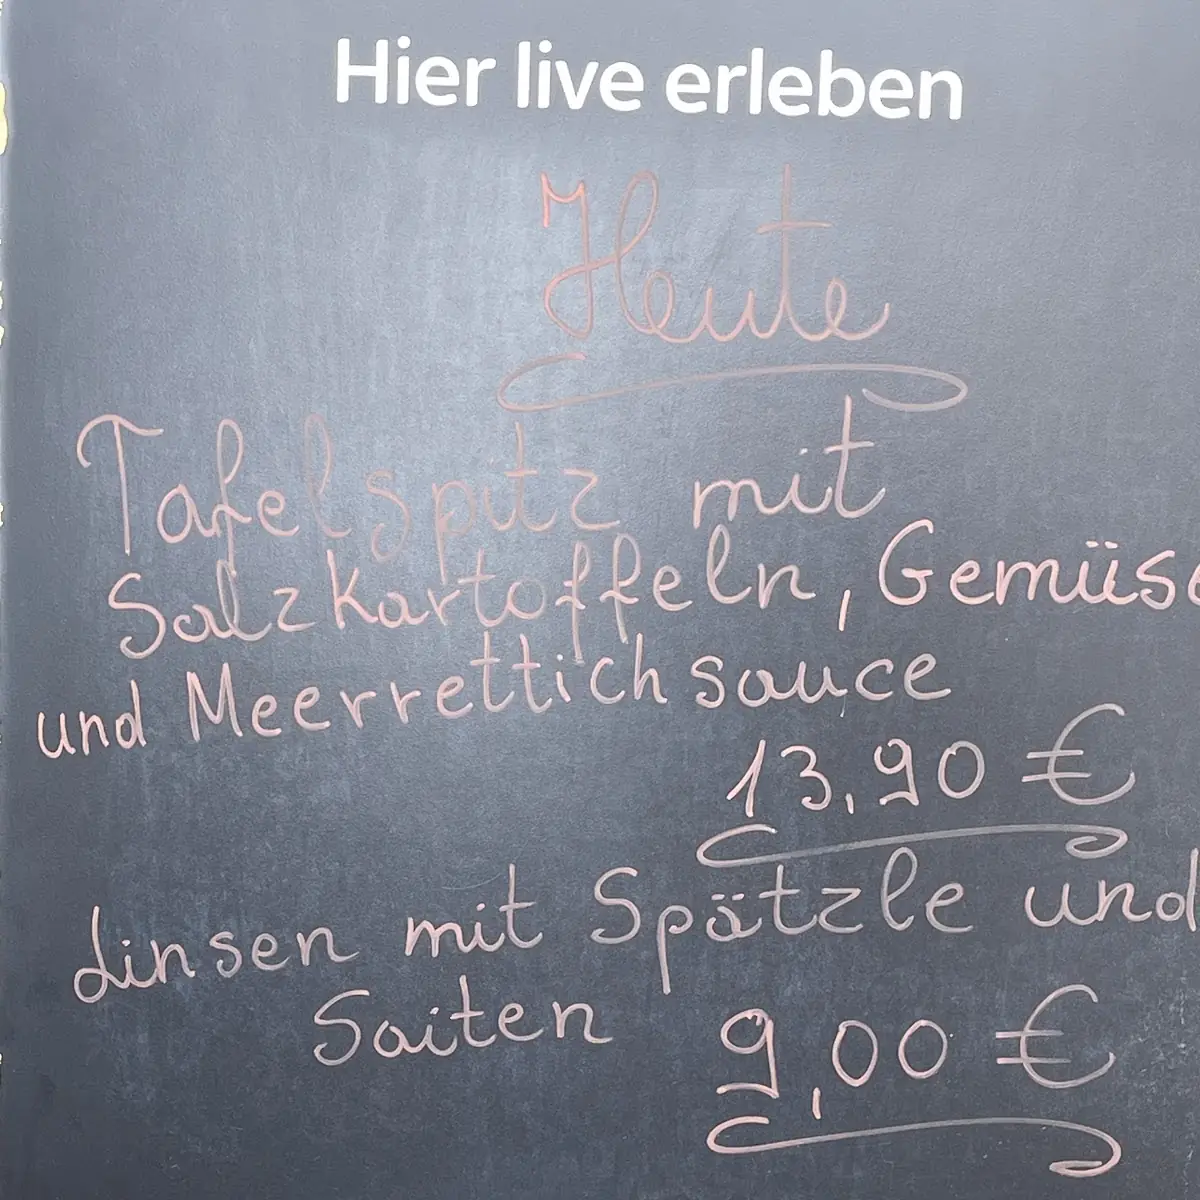 Hier live erleben
Heute
Tafelspitz mit
Salzkartoffeln, Gemüse
und Meerrettichsauce
13,90 €
Linsen mit Spätzle und
Saiten 9,00 €